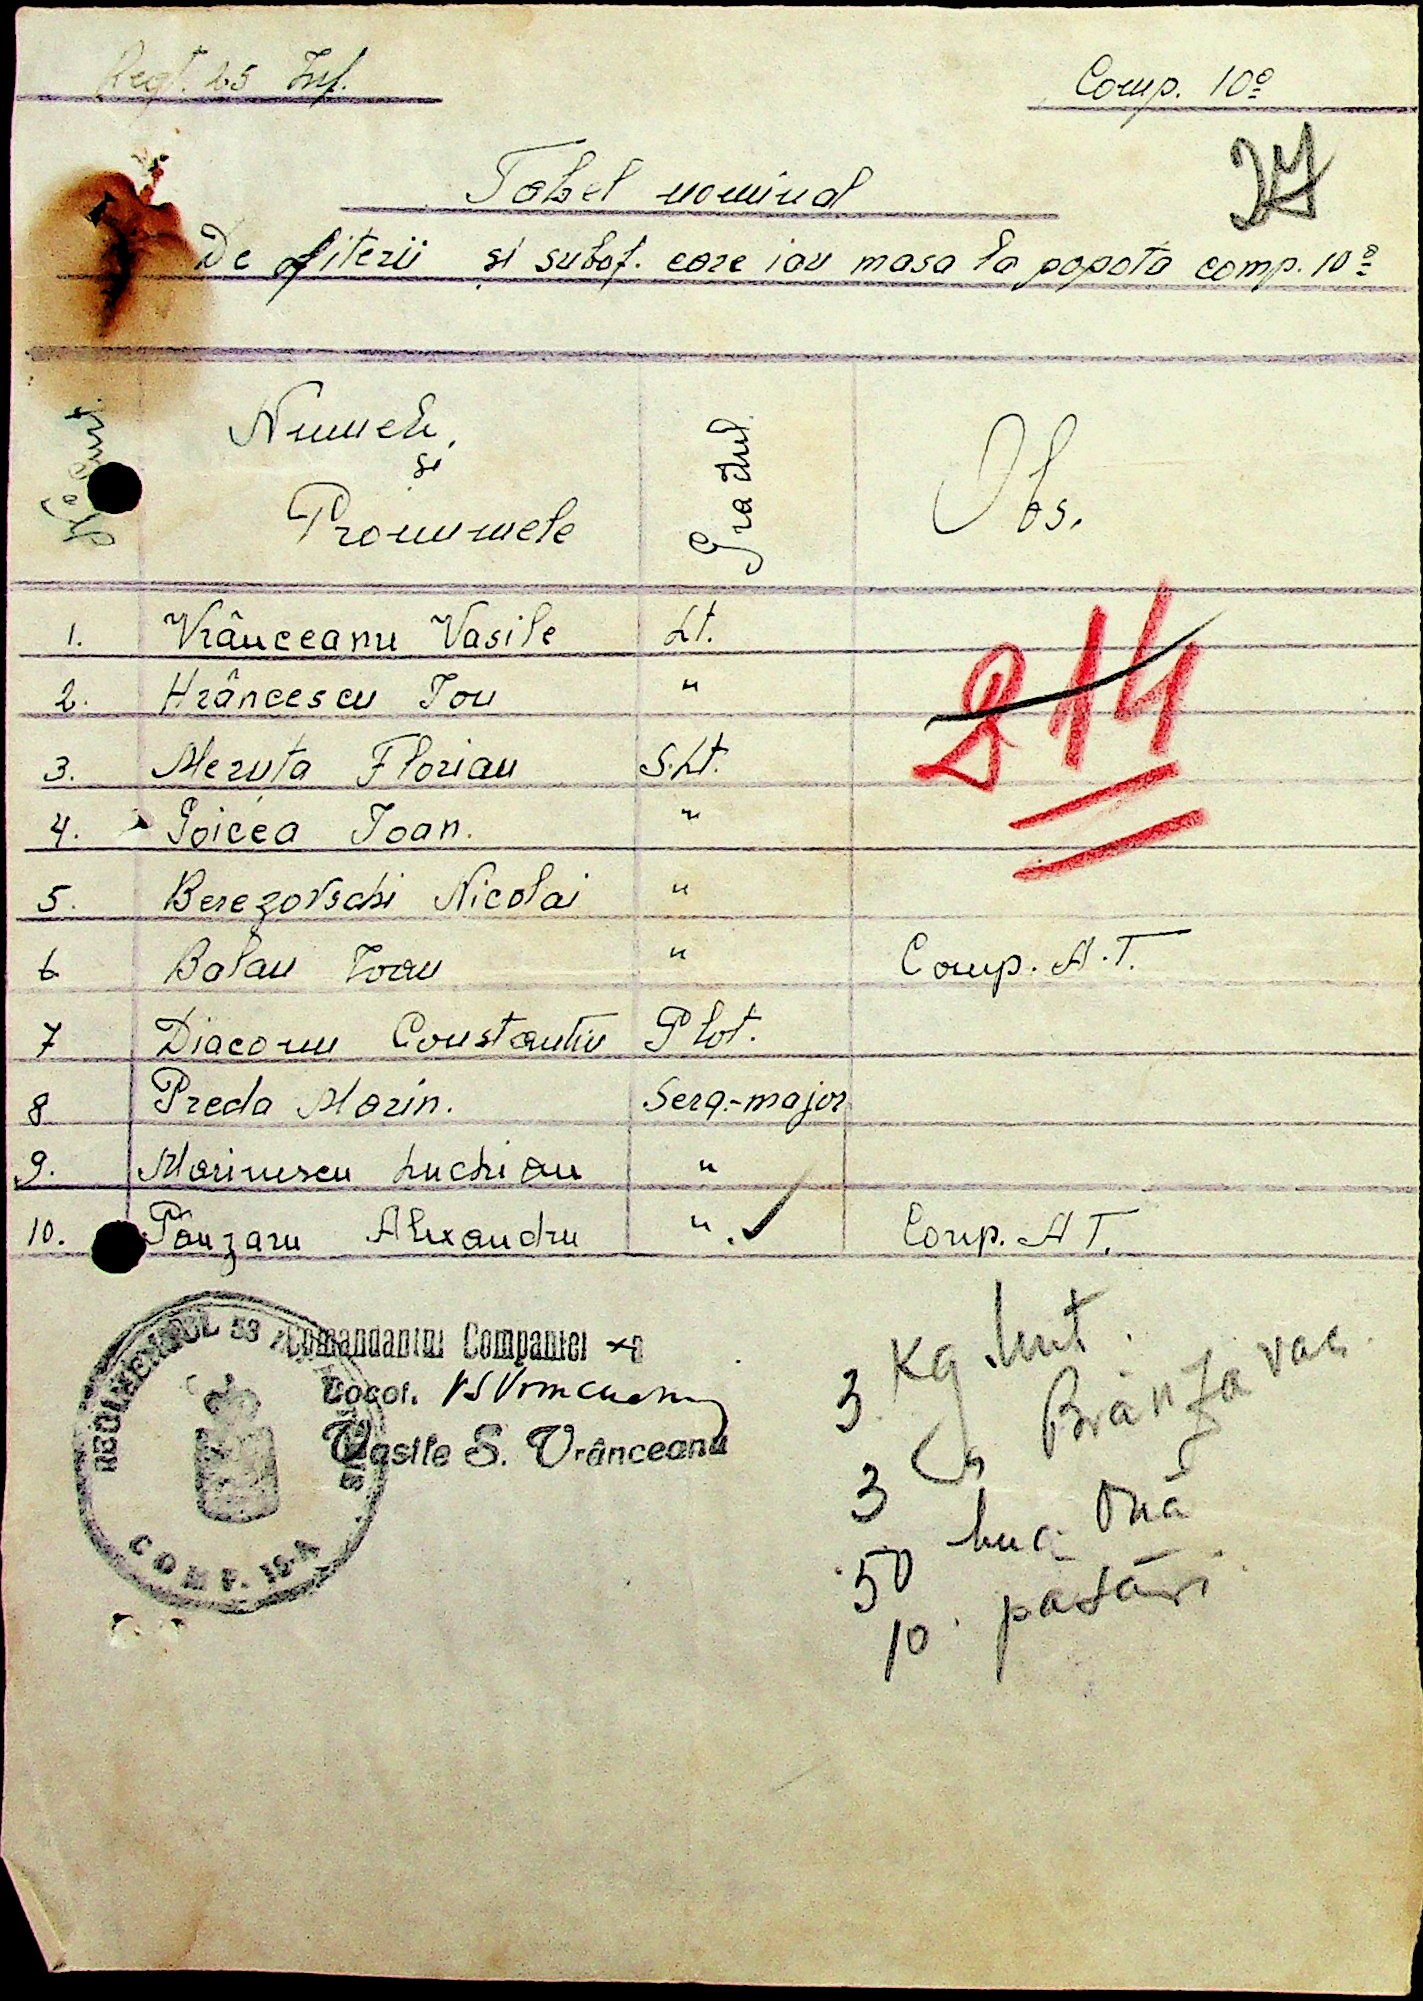 Regt. 65 Inf.
Comp. 10ª
27
Tabel nominal
De ofiterii și subof. care iau masa la popota comp. 10ª
Nº Curt.
Numele
și
Pronumele
Gradul
Obs.
1. Vrânceanu Vasile Lt.
2. Hrâncescu Ion "
3. Meruța Florian S.Lt.
4. Goicea Ioan. "
5. Berezovschi Nicolai "
6 Balan Ioan " Comp. A.T.
7 Diaconu Constantin Plot.
8 Preda Marin. Serg.-major
9. Marinescu Luchian "
10. Pânzaru Alexandru " Comp. A T.
214
REGIMENTUL 53
COMP.
Comandantul Companiei
Locot.
Vasile S. Vrânceanu
3 Kg. Unt.
3 Brânza vac
50 buc. Ouă
10. păsări